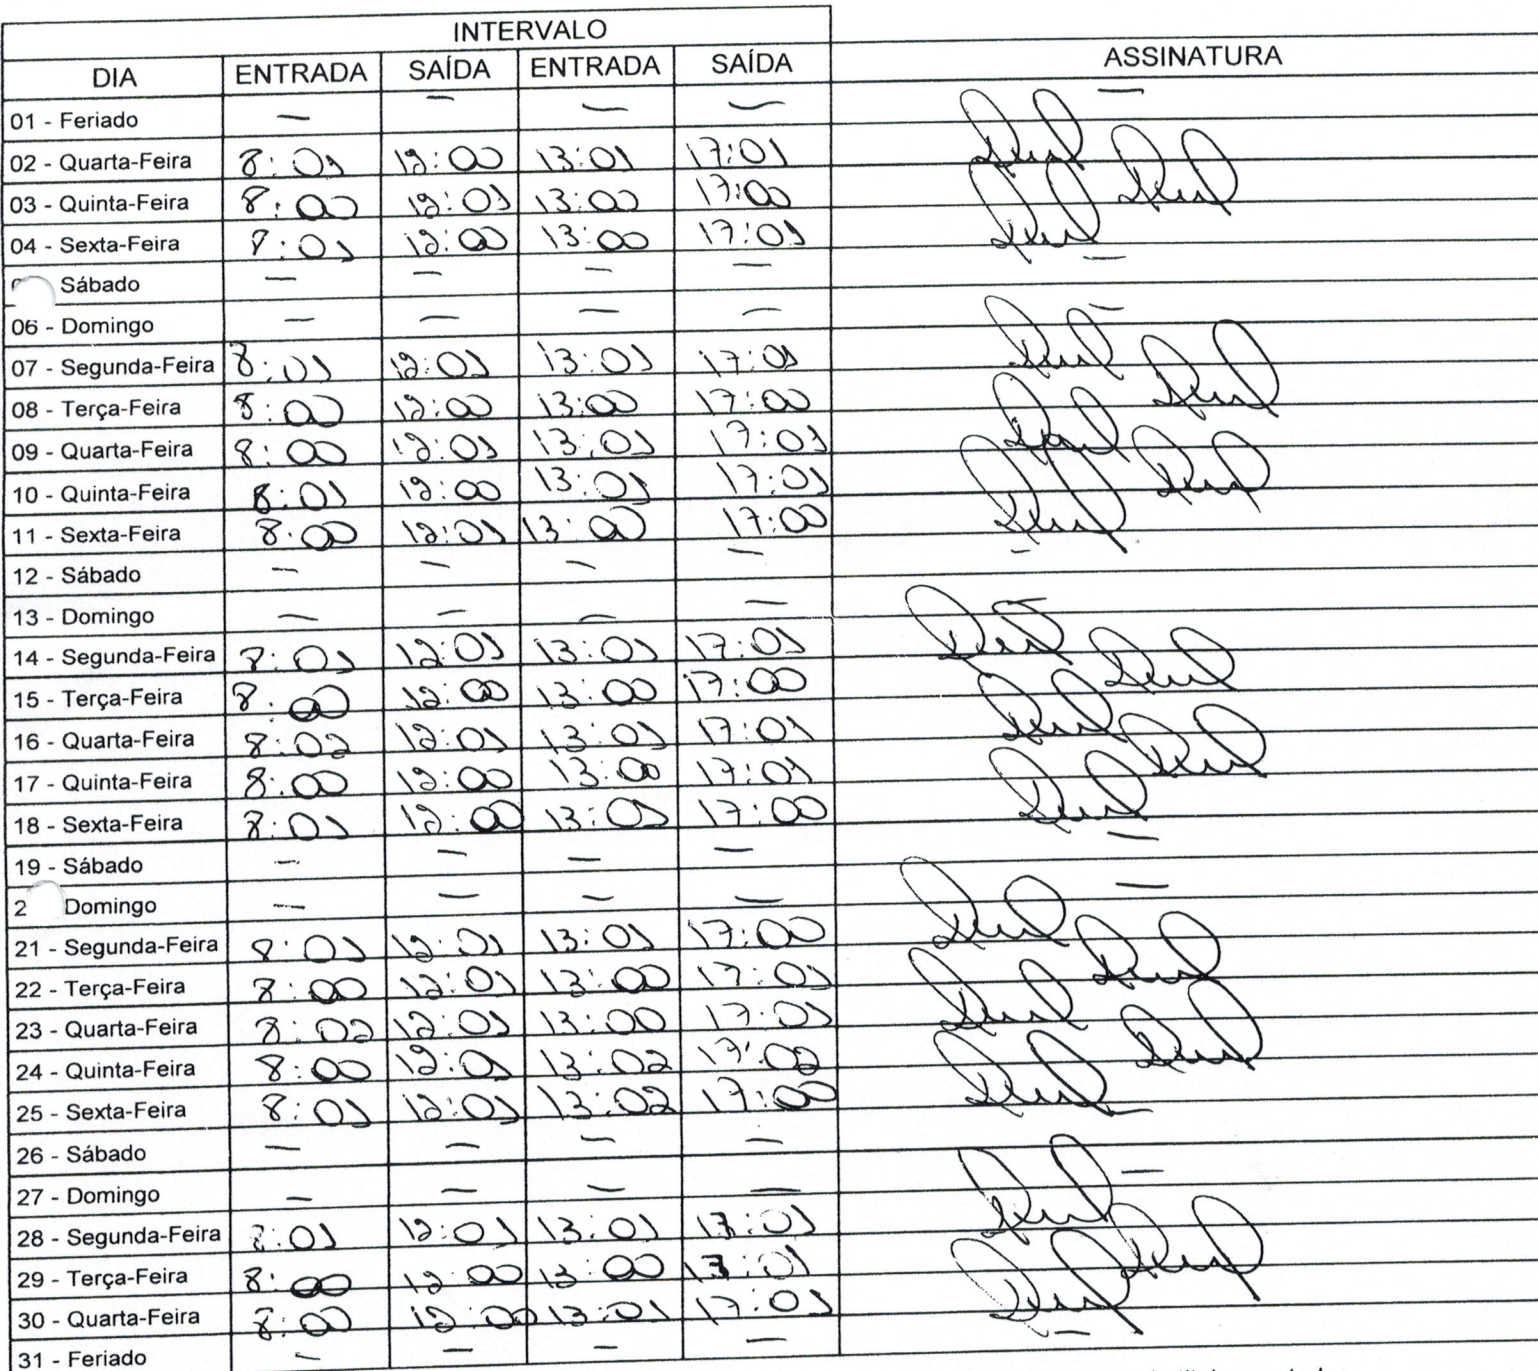 INTERVALO
DIA ENTRADA SAÍDA ENTRADA SAÍDA ASSINATURA
01 - Feriado — — — — —
02 - Quarta-Feira 8:01 12:00 13:01 17:01
03 - Quinta-Feira 8:00 12:01 13:00 17:00
04 - Sexta-Feira 8:01 12:00 13:00 17:01
Sábado — — — — —
06 - Domingo — — — — —
07 - Segunda-Feira 8:01 12:01 13:01 17:01
08 - Terça-Feira 8:00 12:00 13:00 17:00
09 - Quarta-Feira 8:00 12:01 13:01 17:01
10 - Quinta-Feira 8:01 12:00 13:01 17:01
11 - Sexta-Feira 8:00 12:01 13:00 17:00
12 - Sábado — — — — —
13 - Domingo — — — — —
14 - Segunda-Feira 8:01 12:01 13:01 17:01
15 - Terça-Feira 8:00 12:00 13:00 17:00
16 - Quarta-Feira 8:02 12:01 13:01 17:01
17 - Quinta-Feira 8:00 12:00 13:00 17:01
18 - Sexta-Feira 8:01 12:00 13:01 17:00
19 - Sábado — — — — —
2 Domingo — — — — —
21 - Segunda-Feira 8:01 12:01 13:01 17:00
22 - Terça-Feira 8:00 12:01 13:00 17:01
23 - Quarta-Feira 8:02 12:01 13:00 17:01
24 - Quinta-Feira 8:00 12:01 13:02 17:02
25 - Sexta-Feira 8:01 12:01 13:02 17:00
26 - Sábado — — — — —
27 - Domingo — — — — —
28 - Segunda-Feira 8:01 12:01 13:01 17:01
29 - Terça-Feira 8:00 12:00 13:00 17:01
30 - Quarta-Feira 8:00 12:00 13:01 17:01
31 - Feriado — — — — —